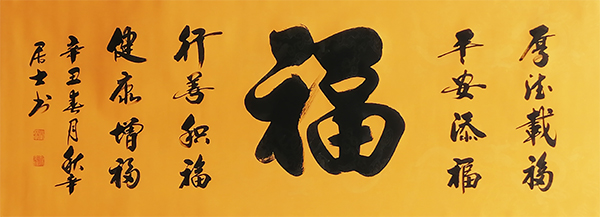 厚德載福
平安添福
福
行善积福
健康增福
辛丑春月秋華
居士书